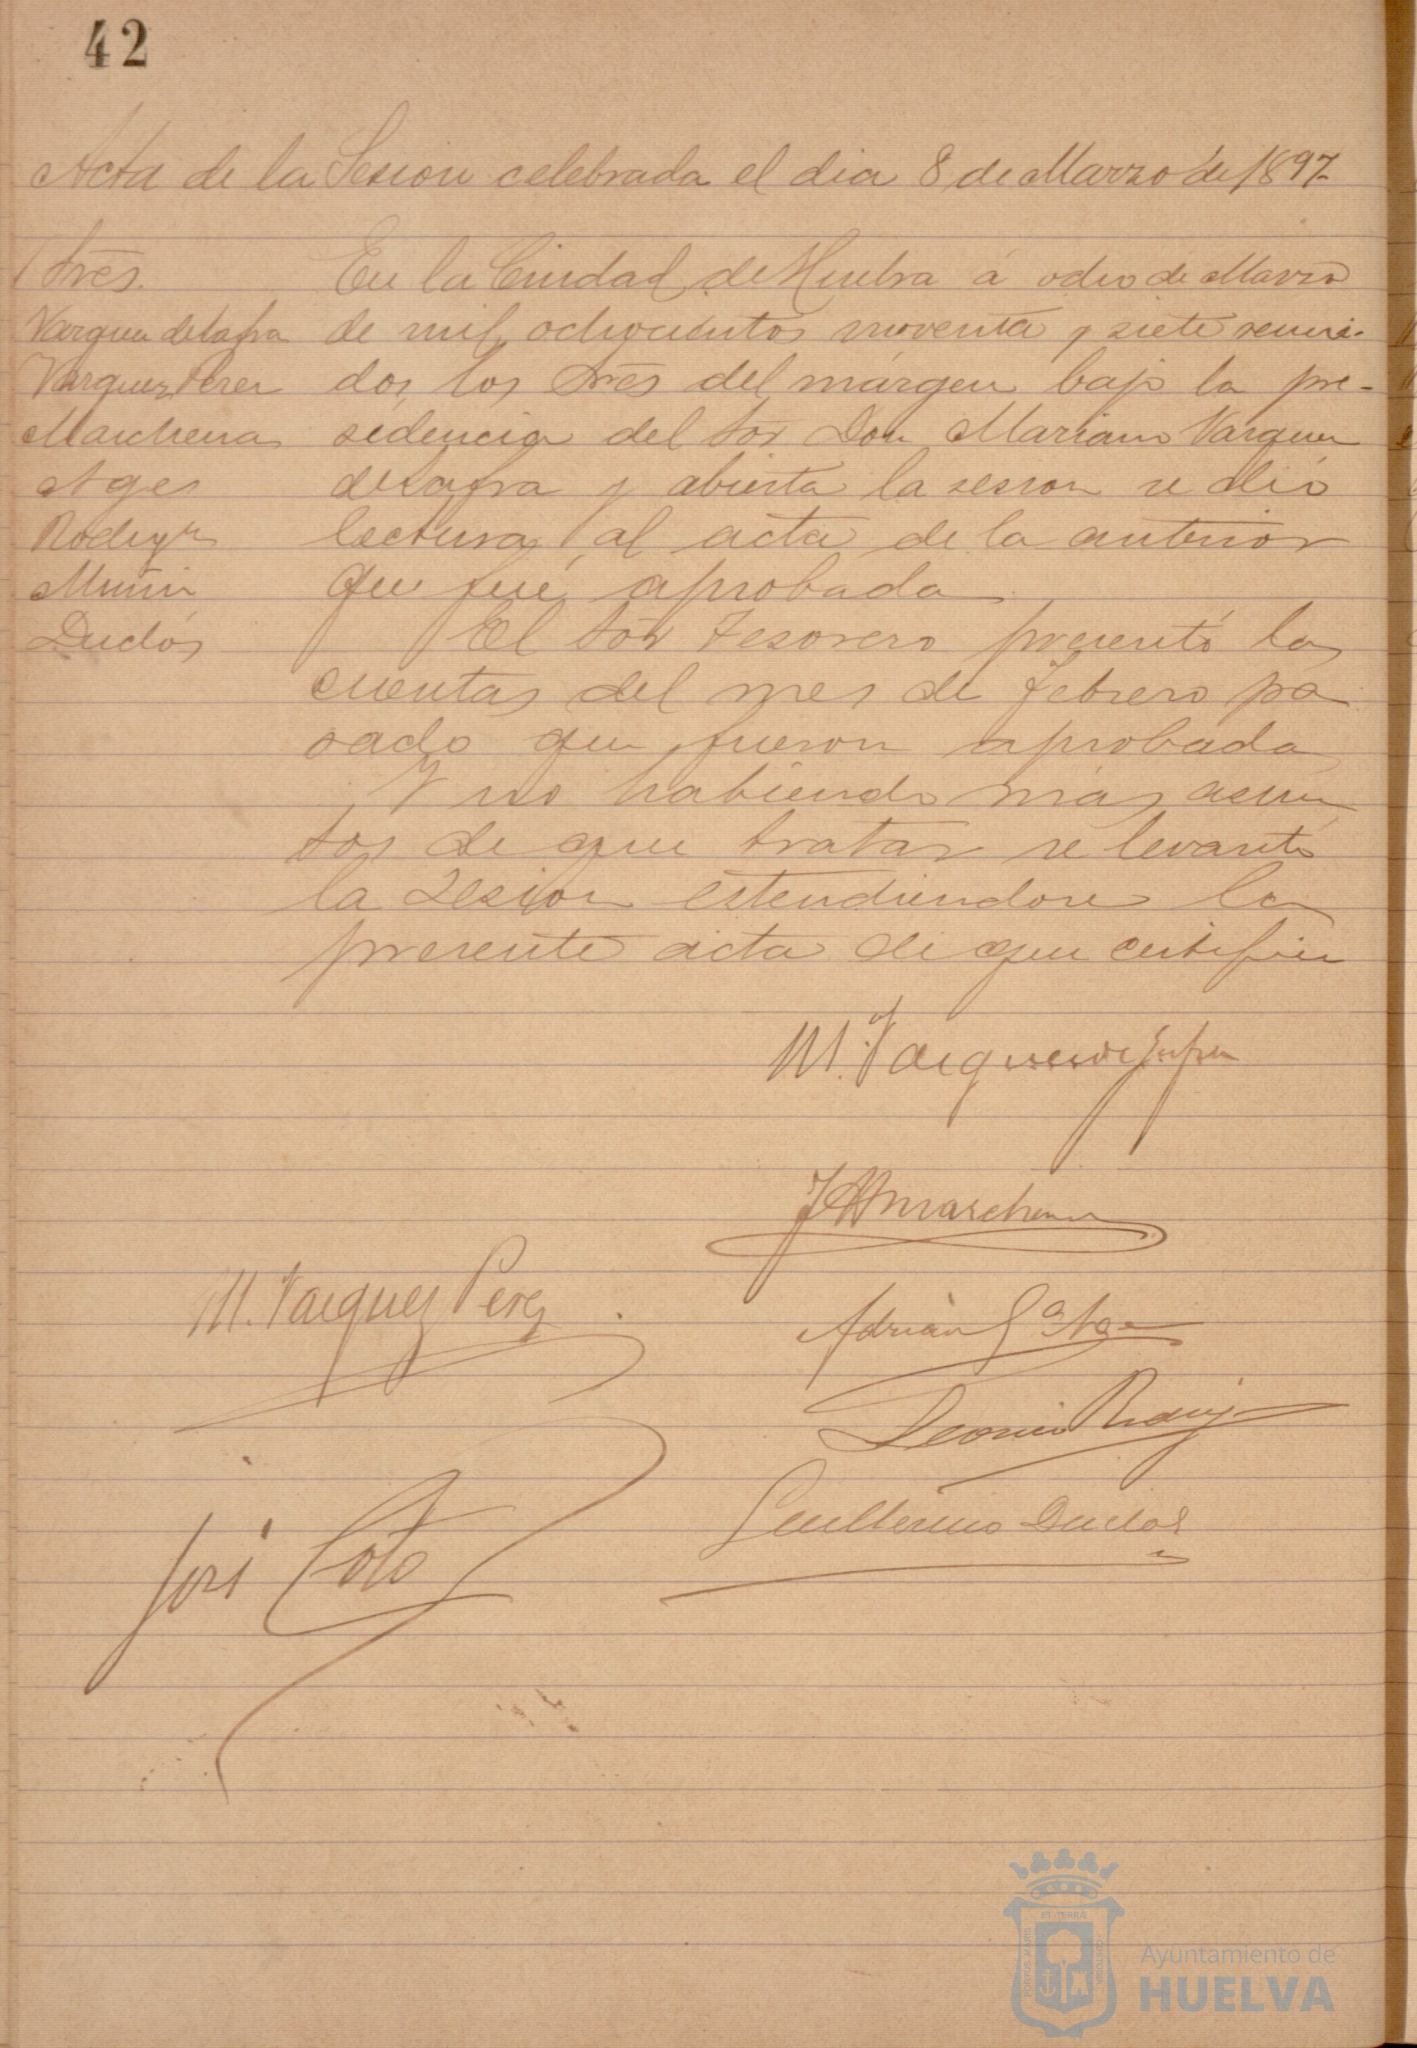 42
Acta de la Sesion celebrada el dia 8 de Marzo de 1897-
Sres.
Vazquez de Zafra
Vazquez Perez
Marchena
Age
Rodrigz
Muñiz
Duclós
En la Ciudad de Huelva á ocho de Marzo
de mil ochocientos noventa y siete reuni-
dos los Sres del márgen bajo la pre-
sidencia del Sor Don Mariano Vazquez
de Zafra y abierta la sesion se dió
lectura al acta de la anterior
que fué aprobada
El Sor Tesorero presentó las
cuentas del mes de Febrero pa
sado que fueron aprobadas
Y no habiendo mas asun
tos de que tratar se levantó
la Sesion estendiendose la
presente acta de que certifico
M. Vazquez de Zafra
Marchena
M. Vazquez Perez
Adrian
Leoncio Rodrig
José Coto
Guillermo Duclos
PORTUS MARIS ET TERRÆ CUSTODIA
Ayuntamiento de
HUELVA